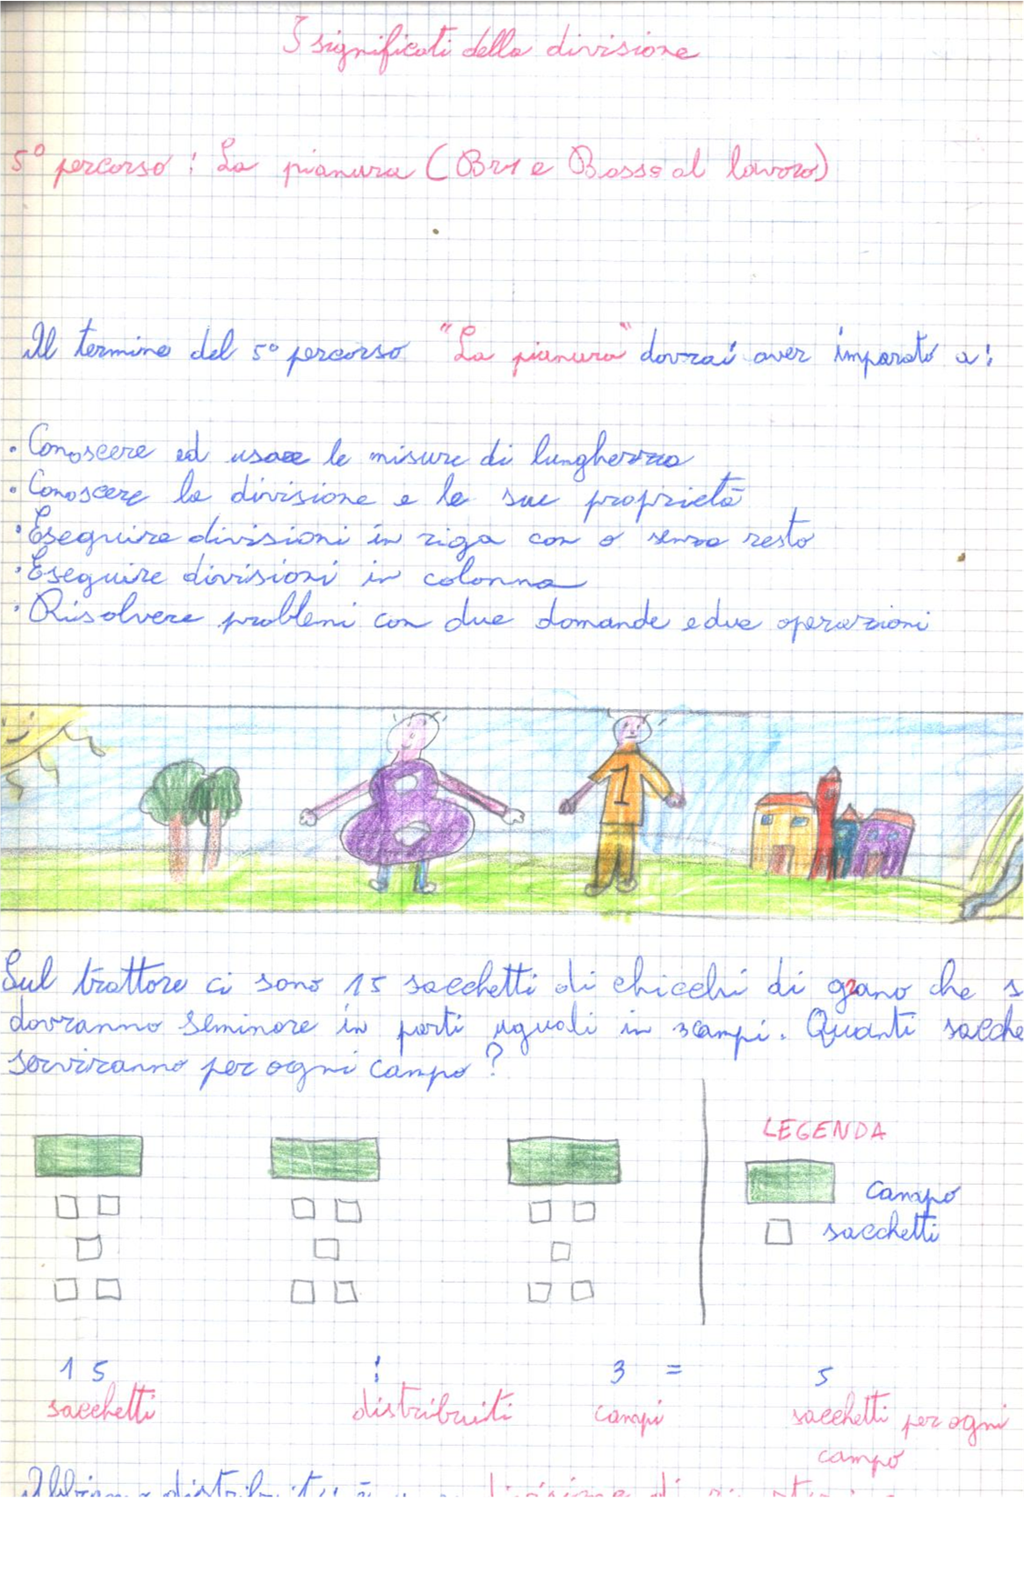 I significati della divisione
5° percorso: La pianura ( e al lavoro)
Al termine del 5° percorso "La pianura" dovrai aver imparato a:
• Conoscere ed usare le misure di lunghezza
• Conoscere la divisione e le sue proprietà
• Eseguire divisioni in riga con o senza resto
• Eseguire divisioni in colonna
• Risolvere problemi con due domande e due operazioni
1
Sul trattore ci sono 15 sacchetti di chicchi di grano che s
dovranno seminare in parti uguali in 3 campi. Quanti sacche
serviranno per ogni campo?
LEGENDA
campo
sacchetti
15 : 3 = 5
sacchetti distribuiti campi sacchetti per ogni
campo